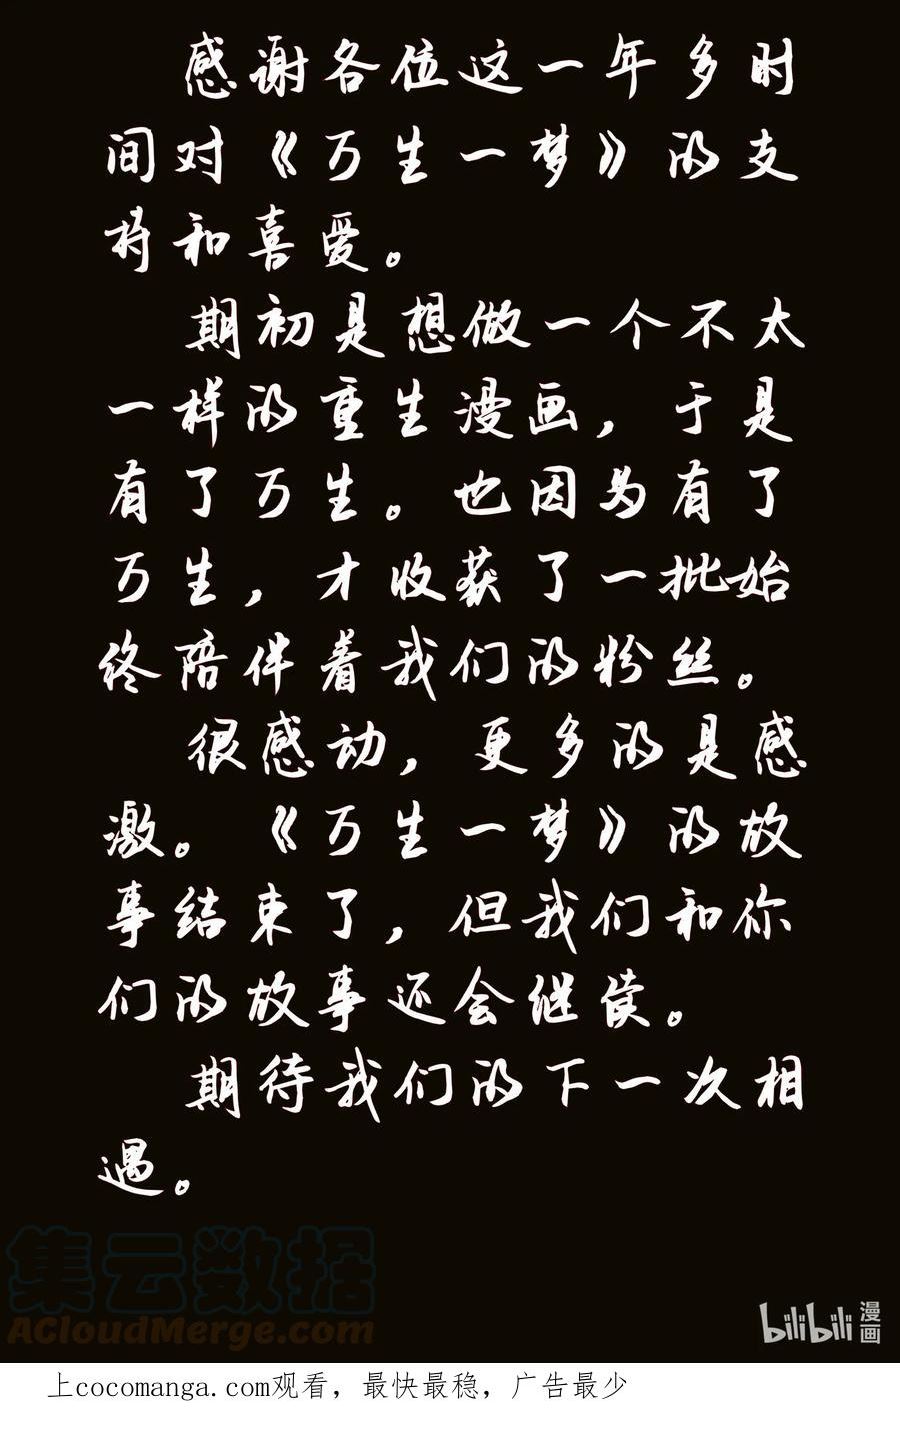 感谢各位这一年多时
间对《万生一梦》的支
持和喜爱。
期初是想做一个不太
一样的重生漫画，于是
有了万生。也因为有了
万生，才收获了一批始
终陪伴着我们的粉丝。
很感动，更多的是感
激。《万生一梦》的故
事结束了，但我们和你
们的故事还会继续。
期待我们的下一次相
遇。
集云数据
ACloudMerge.com
bilibili 漫画
上cocomanga.com观看，最快最稳，广告最少